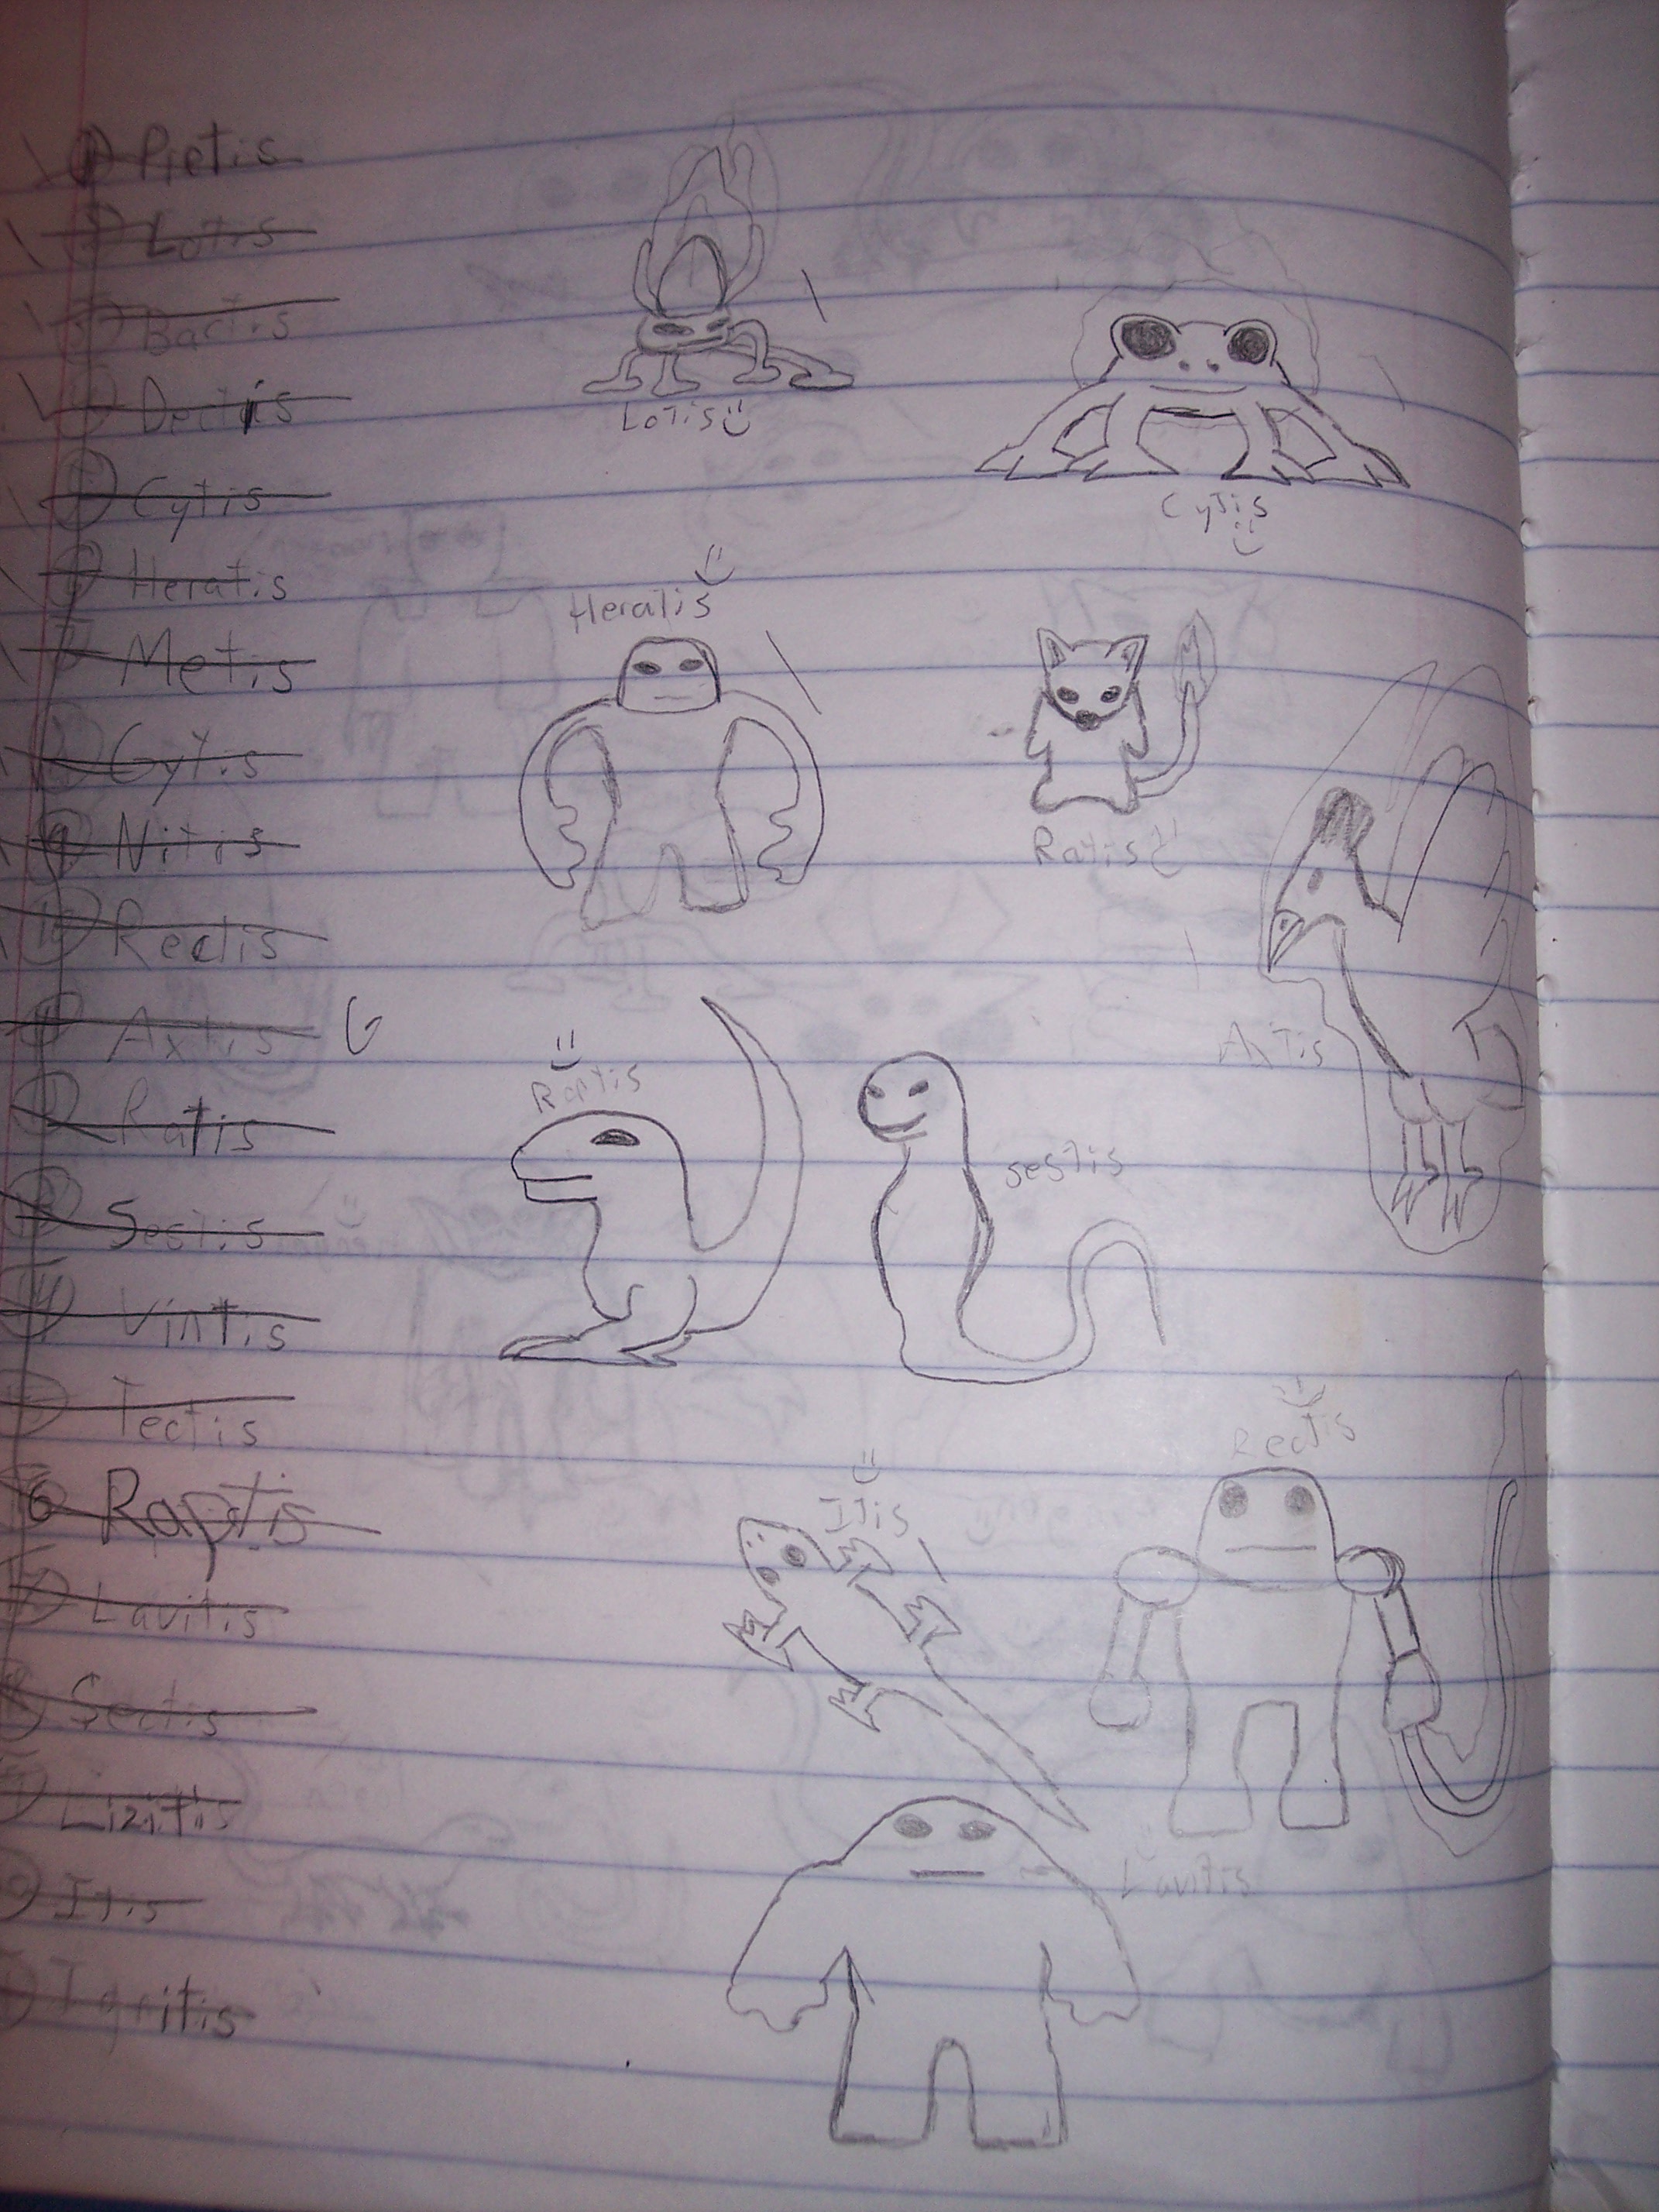 Pietis
Lotis
Bactis
Dectis
Cytis
Heratis
Metis
Gytis
9 Nitis
10 Rectis
Axtis
Ratis
Sestis
14 Vintis
Tectis
6 Raptis
Lavitis
Sectis
Lizitis
Itis
Ignitis
Lotis
Cytis
Heratis
Ratis
Axtis
Raptis
sestis
Rectis
Itis
Lavitis